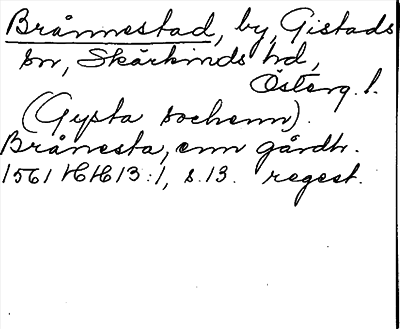 Brånnestad, by, Gistads
sn, Skärkinds hd,
Österg. l.
(Gypta sochenn).
Brånesta, enn gårdh.
1561 HH 13:1, s. 13. regest.